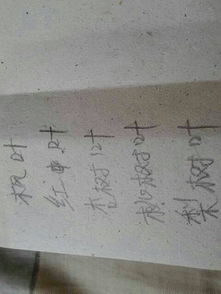 枫叶
红叶
杏树叶
树叶
梨树叶